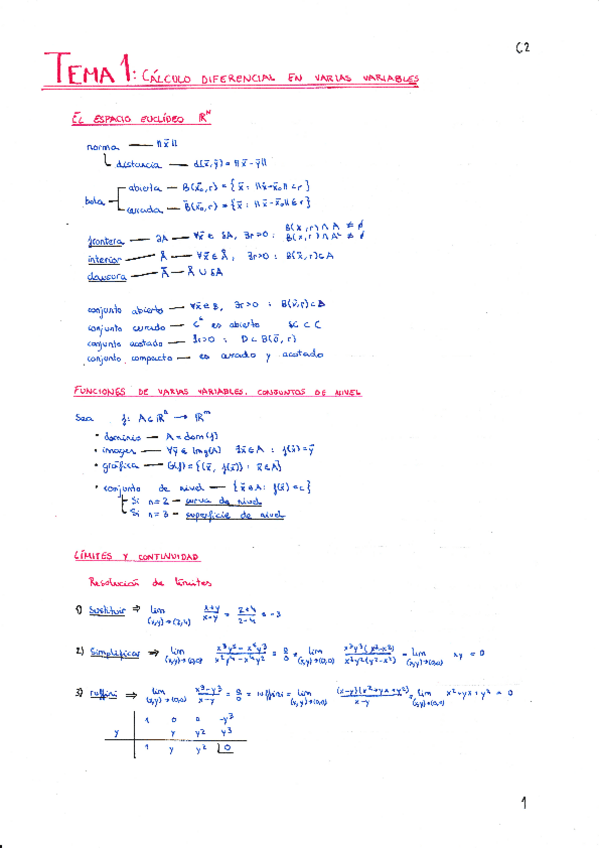 C2
TEMA 1: CÁLCULO DIFERENCIAL EN VARIAS VARIABLES
EL ESPACIO EUCLÍDEO ℝⁿ
norma — ‖x̄‖
distancia — d(x̄,ȳ) = ‖x̄-ȳ‖
bola
abierta — B(x̄₀,r) = {x̄ : ‖x̄-x̄₀‖ < r}
cerrada — B̄(x̄₀,r) = {x̄ : ‖x̄-x̄₀‖ ≤ r}
frontera — ∂A — ∀x̄ ∈ ∂A, ∃r>0 : B(x,r)∩A ≠ ∅
B(x,r)∩Aᶜ ≠ ∅
interior — Å — ∀x̄ ∈ Å, ∃r>0 : B(x̄,r)⊂A
clausura — Ā — Å ∪ ∂A
conjunto abierto — ∀x̄ ∈ B, ∃r>0 : B(x̄,r)⊂B
conjunto cerrado — Cᶜ es abierto ∂C ⊂ C
conjunto acotado — ∃r>0 : D⊂B(ō,r)
conjunto compacto — es cerrado y acotado
FUNCIONES DE VARIAS VARIABLES. CONJUNTOS DE NIVEL
Sea f: A⊂ℝⁿ → ℝᵐ
• dominio — A = dom(f)
• imagen — ∀ȳ ∈ Img(A) ∃x̄∈A : f(x̄)=ȳ
• gráfica — G(f) = {(x̄, f(x̄)) : x̄∈A}
• conjunto de nivel — {x̄∈A : f(x̄)=c}
Si n=2 — curva de nivel
Si n=3 — superficie de nivel
LÍMITES Y CONTINUIDAD
Resolución de límites
1) Sustituir ⇒ lim (x,y)→(2,4) x+y/x-y = 2+4/2-4 = -3
2) Simplificar → lim (x,y)→(0,0) x³y⁵-x⁵y³/x²y⁴-x⁴y² = 0/0 = lim (x,y)→(0,0) x³y³(y²-x²)/x²y²(y²-x²) = lim (x,y)→(0,0) xy = 0
3) ruffini ⇒ lim (x,y)→(0,0) x³-y³/x-y = 0/0 = ruffini = lim (x,y)→(0,0) (x-y)(x²+yx+y²)/x-y = lim (x,y)→(0,0) x²+yx+y² = 0
1 0 0 -y³
y y y² y³
1 y y² 0
1